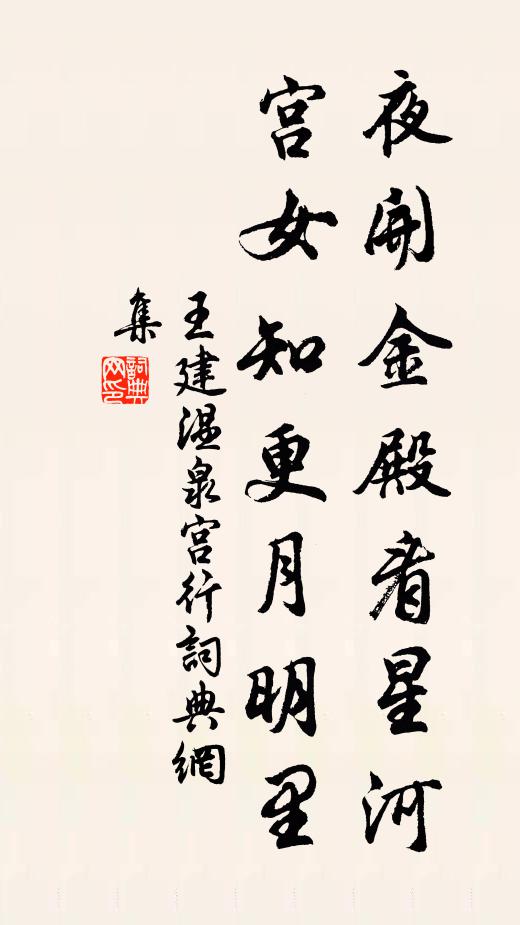 夜開金殿看星河
宫女知更月明里
王建温泉宫行詞典網
集
詞典网印